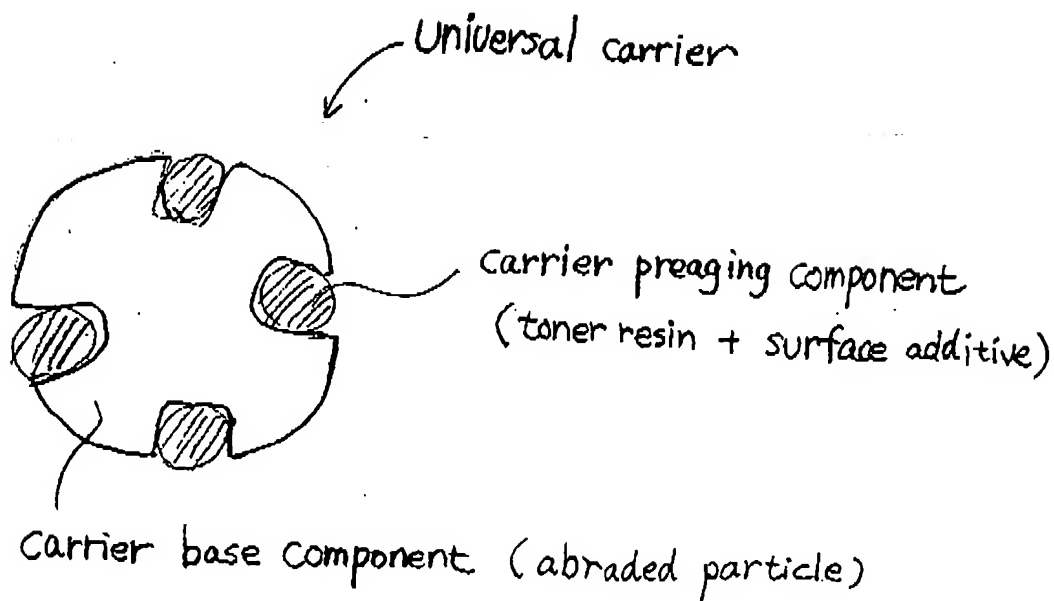 Universal carrier
Carrier preaging component
(toner resin + surface additive)
Carrier base component (abraded particle)